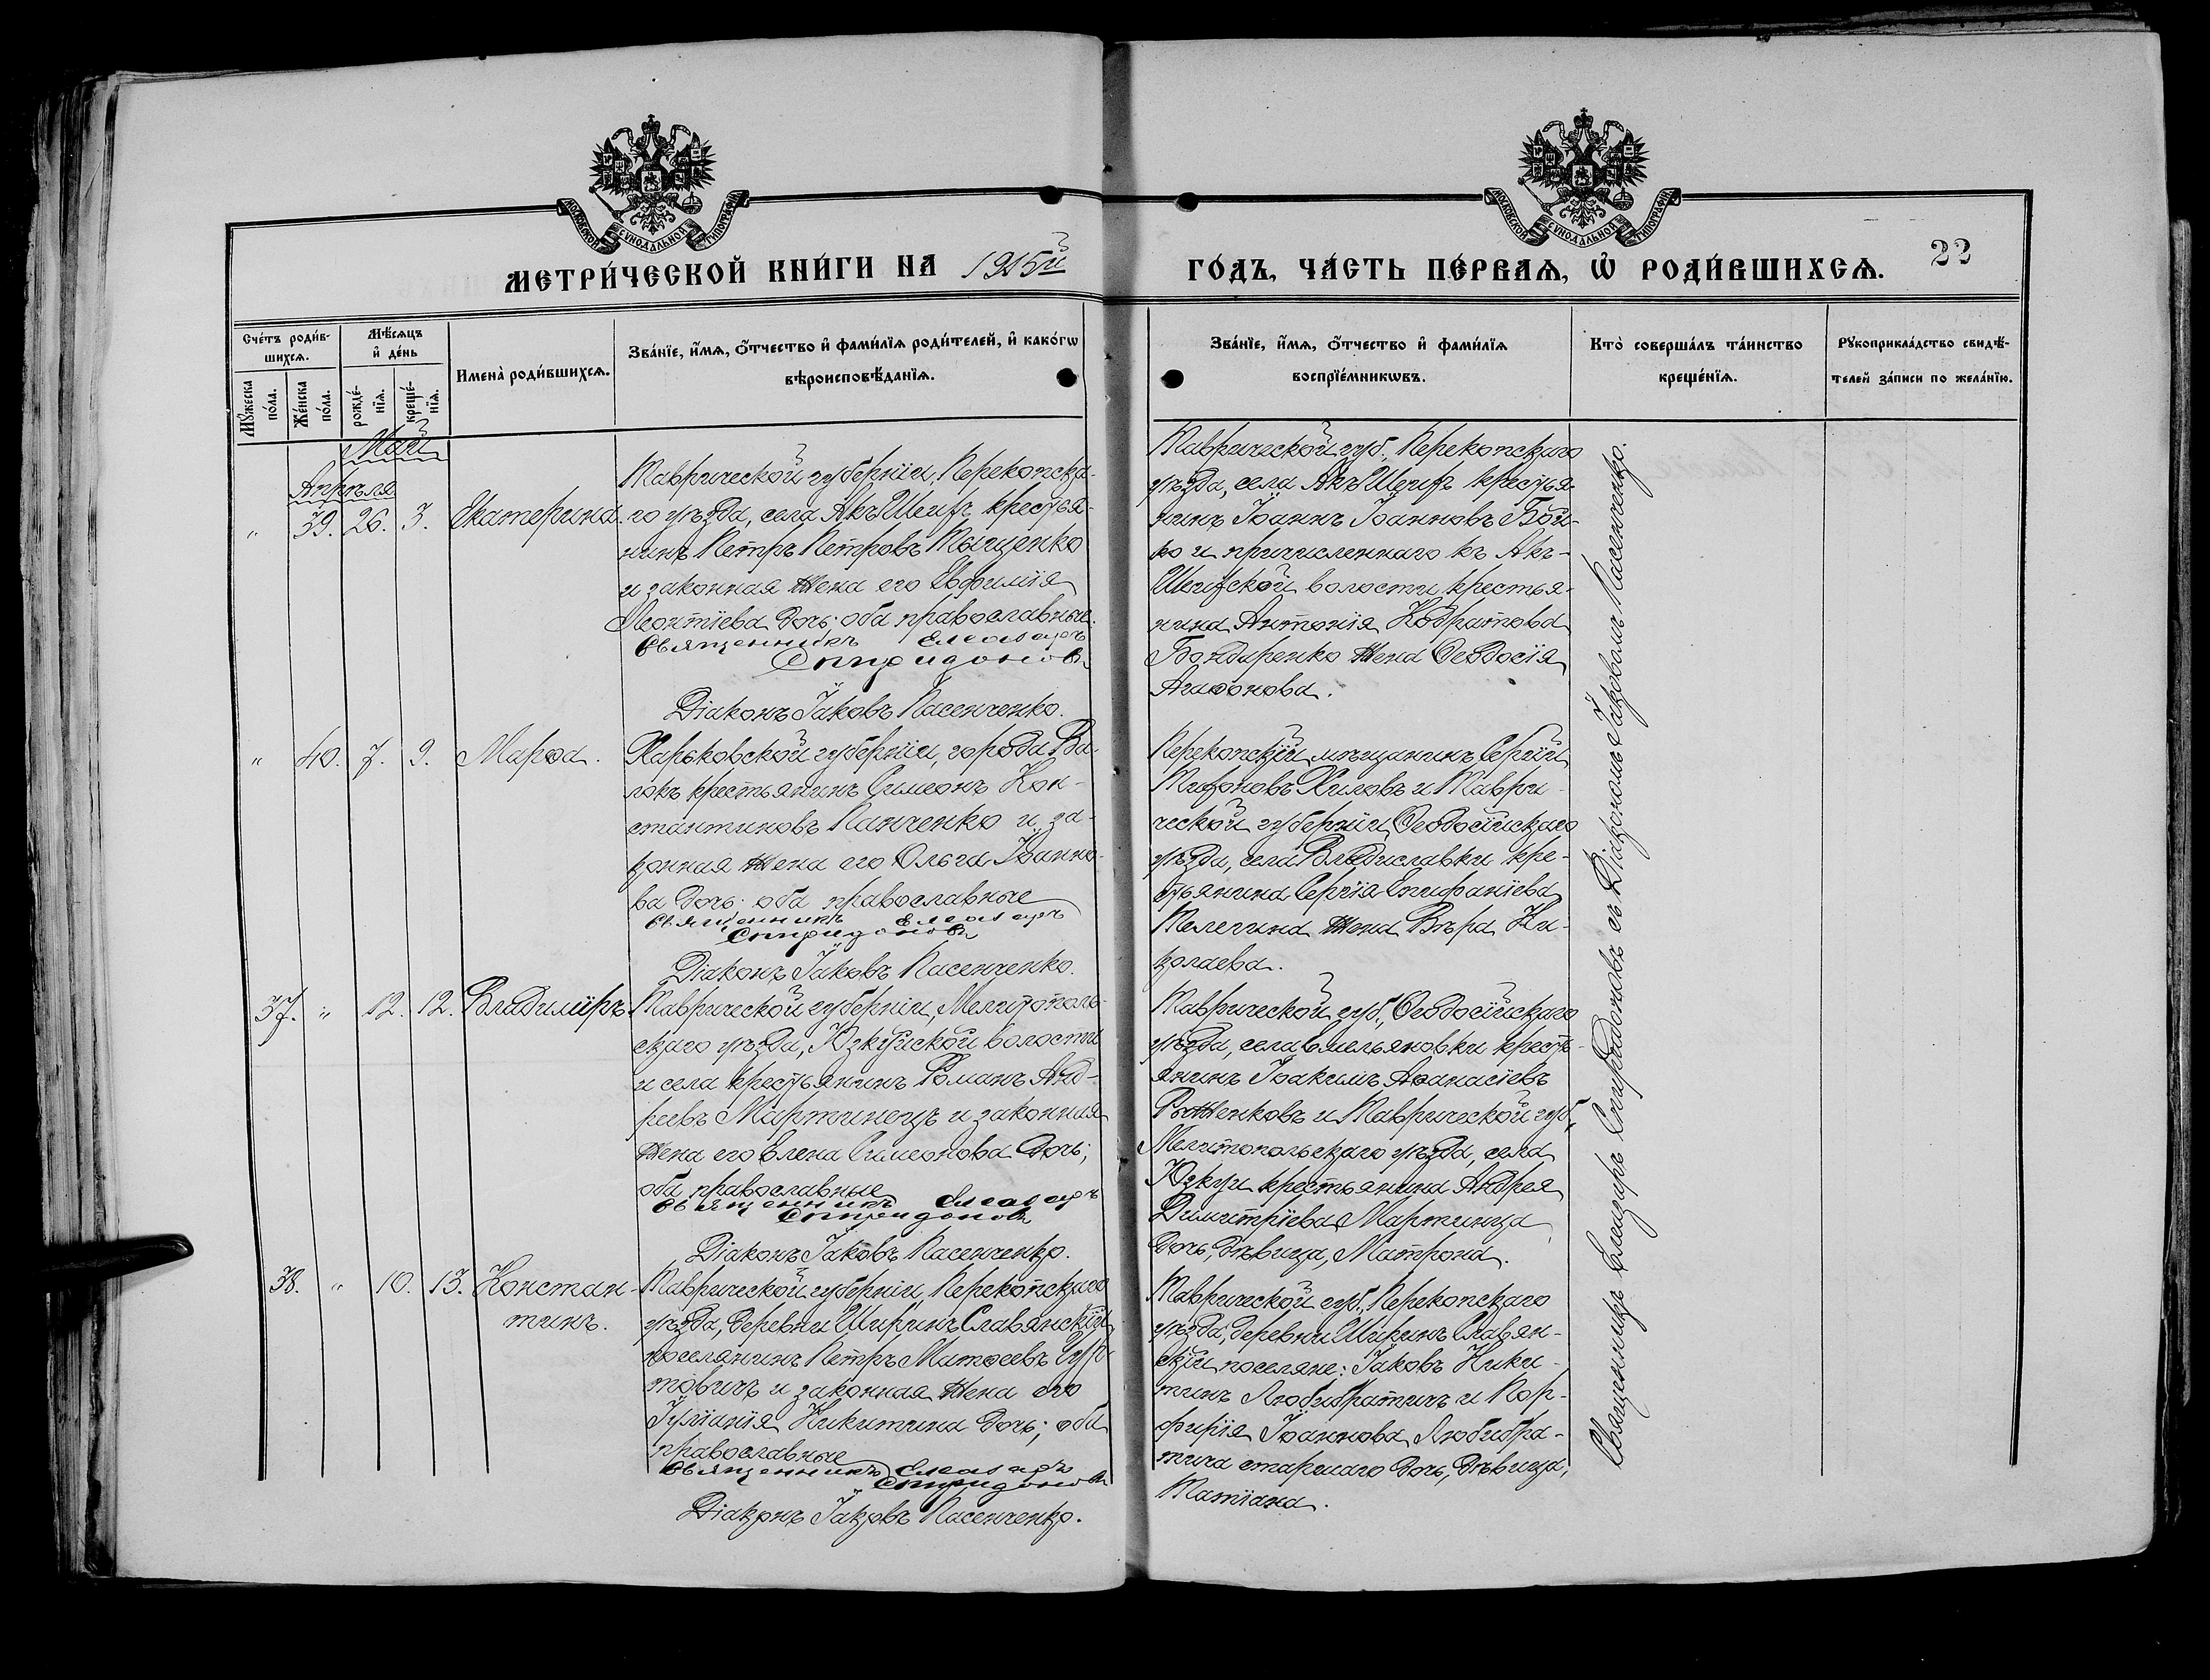 МОСКОВСКОЙ СѴНОДАЛЬНОЙ ТИПОГРАФІИ
МОСКОВСКОЙ СѴНОДАЛЬНОЙ ТИПОГРАФІИ
МЕТРИ́ЧЕСКОЙ КНИ́ГИ НА 1915й
ГО́ДЪ, ЧА́СТЬ ПЕ́РВАѦ, Ѡ҆ РОДИ́ВШИХСѦ. 22
Сче́тъ роди́в-
шихсѧ.
Мꙋ́жеска по́ла.
Же́нска по́ла.
Мѣ́сѧцъ
и҆ де́нь
рожде́-
нїѧ.
креще́-
нїѧ.
Имена̀ роди́вшихсѧ.
Зва́нїе, и҆́мѧ, ѻ҆́тчество и҆ фами́лїѧ роди́телей, и҆ како́гѡ
вѣроисповѣ́данїѧ.
Зва́нїе, и҆́мѧ, ѻ҆́тчество и҆ фами́лїѧ
воспрїе́мникѡвъ.
Кто̀ соверша́лъ та́инство
креще́нїѧ.
Рꙋкоприкла́дство свидѣ́-
телей за́писи по жела́нїю.
Май
Апрѣля
" 39. 26. 3. Екатерина.
Таврической губерніи, Перекопска-
го уѣзда, села Акъ Шеихъ крестья-
нинъ Петръ Петровъ Тыщенко
и законная жена его Евфимія
Леонтіева дочь; оба православные.
Священникъ Елеазаръ
Спиридоновъ
Діаконъ Іаковъ Пасенченко.
Таврической губ., Перекопскаго
уѣзда, села Акъ Шеихъ крестья-
нинъ Іоаннъ Іоанновъ Бой-
ко и причисленнаго къ Акъ-
Шеихской волости крестья-
нина Антонія Кодратова
Бондаренко жена Ѳеодосія
Агаѳонова.
" 40. 7. 9. Марѳа.
Харьковской губерніи, города Ва-
локъ крестьянинъ Симеонъ Кон-
стантиновъ Панченко и за-
конная жена его Ольга Іоанно-
ва дочь; оба православные
Священникъ Елеазаръ
Спиридоновъ
Діаконъ Іаковъ Пасенченко.
Перекопскій мѣщанинъ Сергій
Тихоновъ Хиловъ и Таври-
ческой губерніи, Ѳеодосійскаго
уѣзда, села Владиславки кре-
стьянина Сергія Епифаніева
Телегина жена Вѣра Ни-
колаева.
37. " 12. 12. Владиміръ.
Таврической губерніи, Мелитополь-
скаго уѣзда, Юзкуйской волости
и села крестьянинъ Романъ Анд-
реевъ Мартинецъ и законная
жена его Елена Симеонова дочь;
оба православные
Священникъ Елеазаръ
Спиридоновъ
Діаконъ Іаковъ Пасенченко.
Таврической губ., Ѳеодосійскаго
уѣзда, села Емельяновки кресть-
янинъ Іоакимъ Аѳанасіевъ
Рыженковъ и Таврической губ.,
Мелитопольскаго уѣзда, села
Юзкуи крестьянина Андрея
Димитріева Мартинца
дочь, дѣвица, Матрона.
38. " 10. 13. Констан-
тинъ.
Таврической губерніи, Перекопскаго
уѣзда, деревни Ширинъ Славянскій
поселянинъ Петръ Матѳеевъ
и законная жена его
Іуліанія Никитина дочь; оба
православные
Священникъ Елеазаръ
Спиридоновъ
Діаконъ Іаковъ Пасенченко.
Таврической губ., Перекопскаго
уѣзда, деревни Ширинъ Славян-
скіи поселяне: Іаковъ Ники-
тинъ Любибратичъ и Пор-
фирія Іоаннова Любибра-
тича старшаго дочь, дѣвица,
Татіана.
Священникъ Елеазаръ Спиридоновъ съ Діакономъ Іаковомъ Пасенченко.